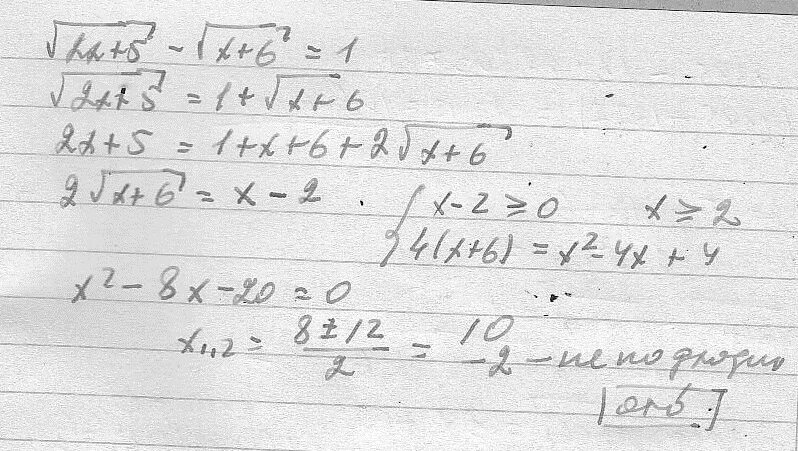 √(2x+5) - √(x+6) = 1
√(2x+5) = 1 + √(x+6)
2x+5 = 1+x+6+2√(x+6)
2√(x+6) = x - 2 . { x-2 ≥ 0 x ≥ 2
4(x+6) = x² - 4x + 4
x² - 8x - 20 = 0
x₁,₂ = (8±12)/2 = 10
-2 - не подходит
отв.